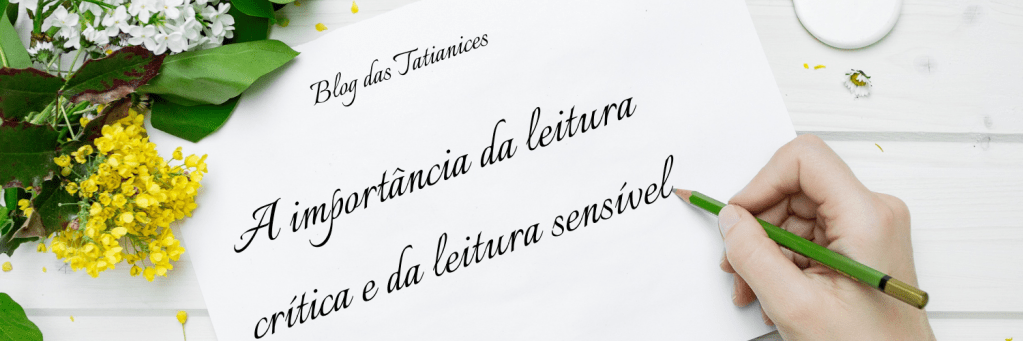 Blog das Tatianices
A importância da leitura
crítica e da leitura sensível